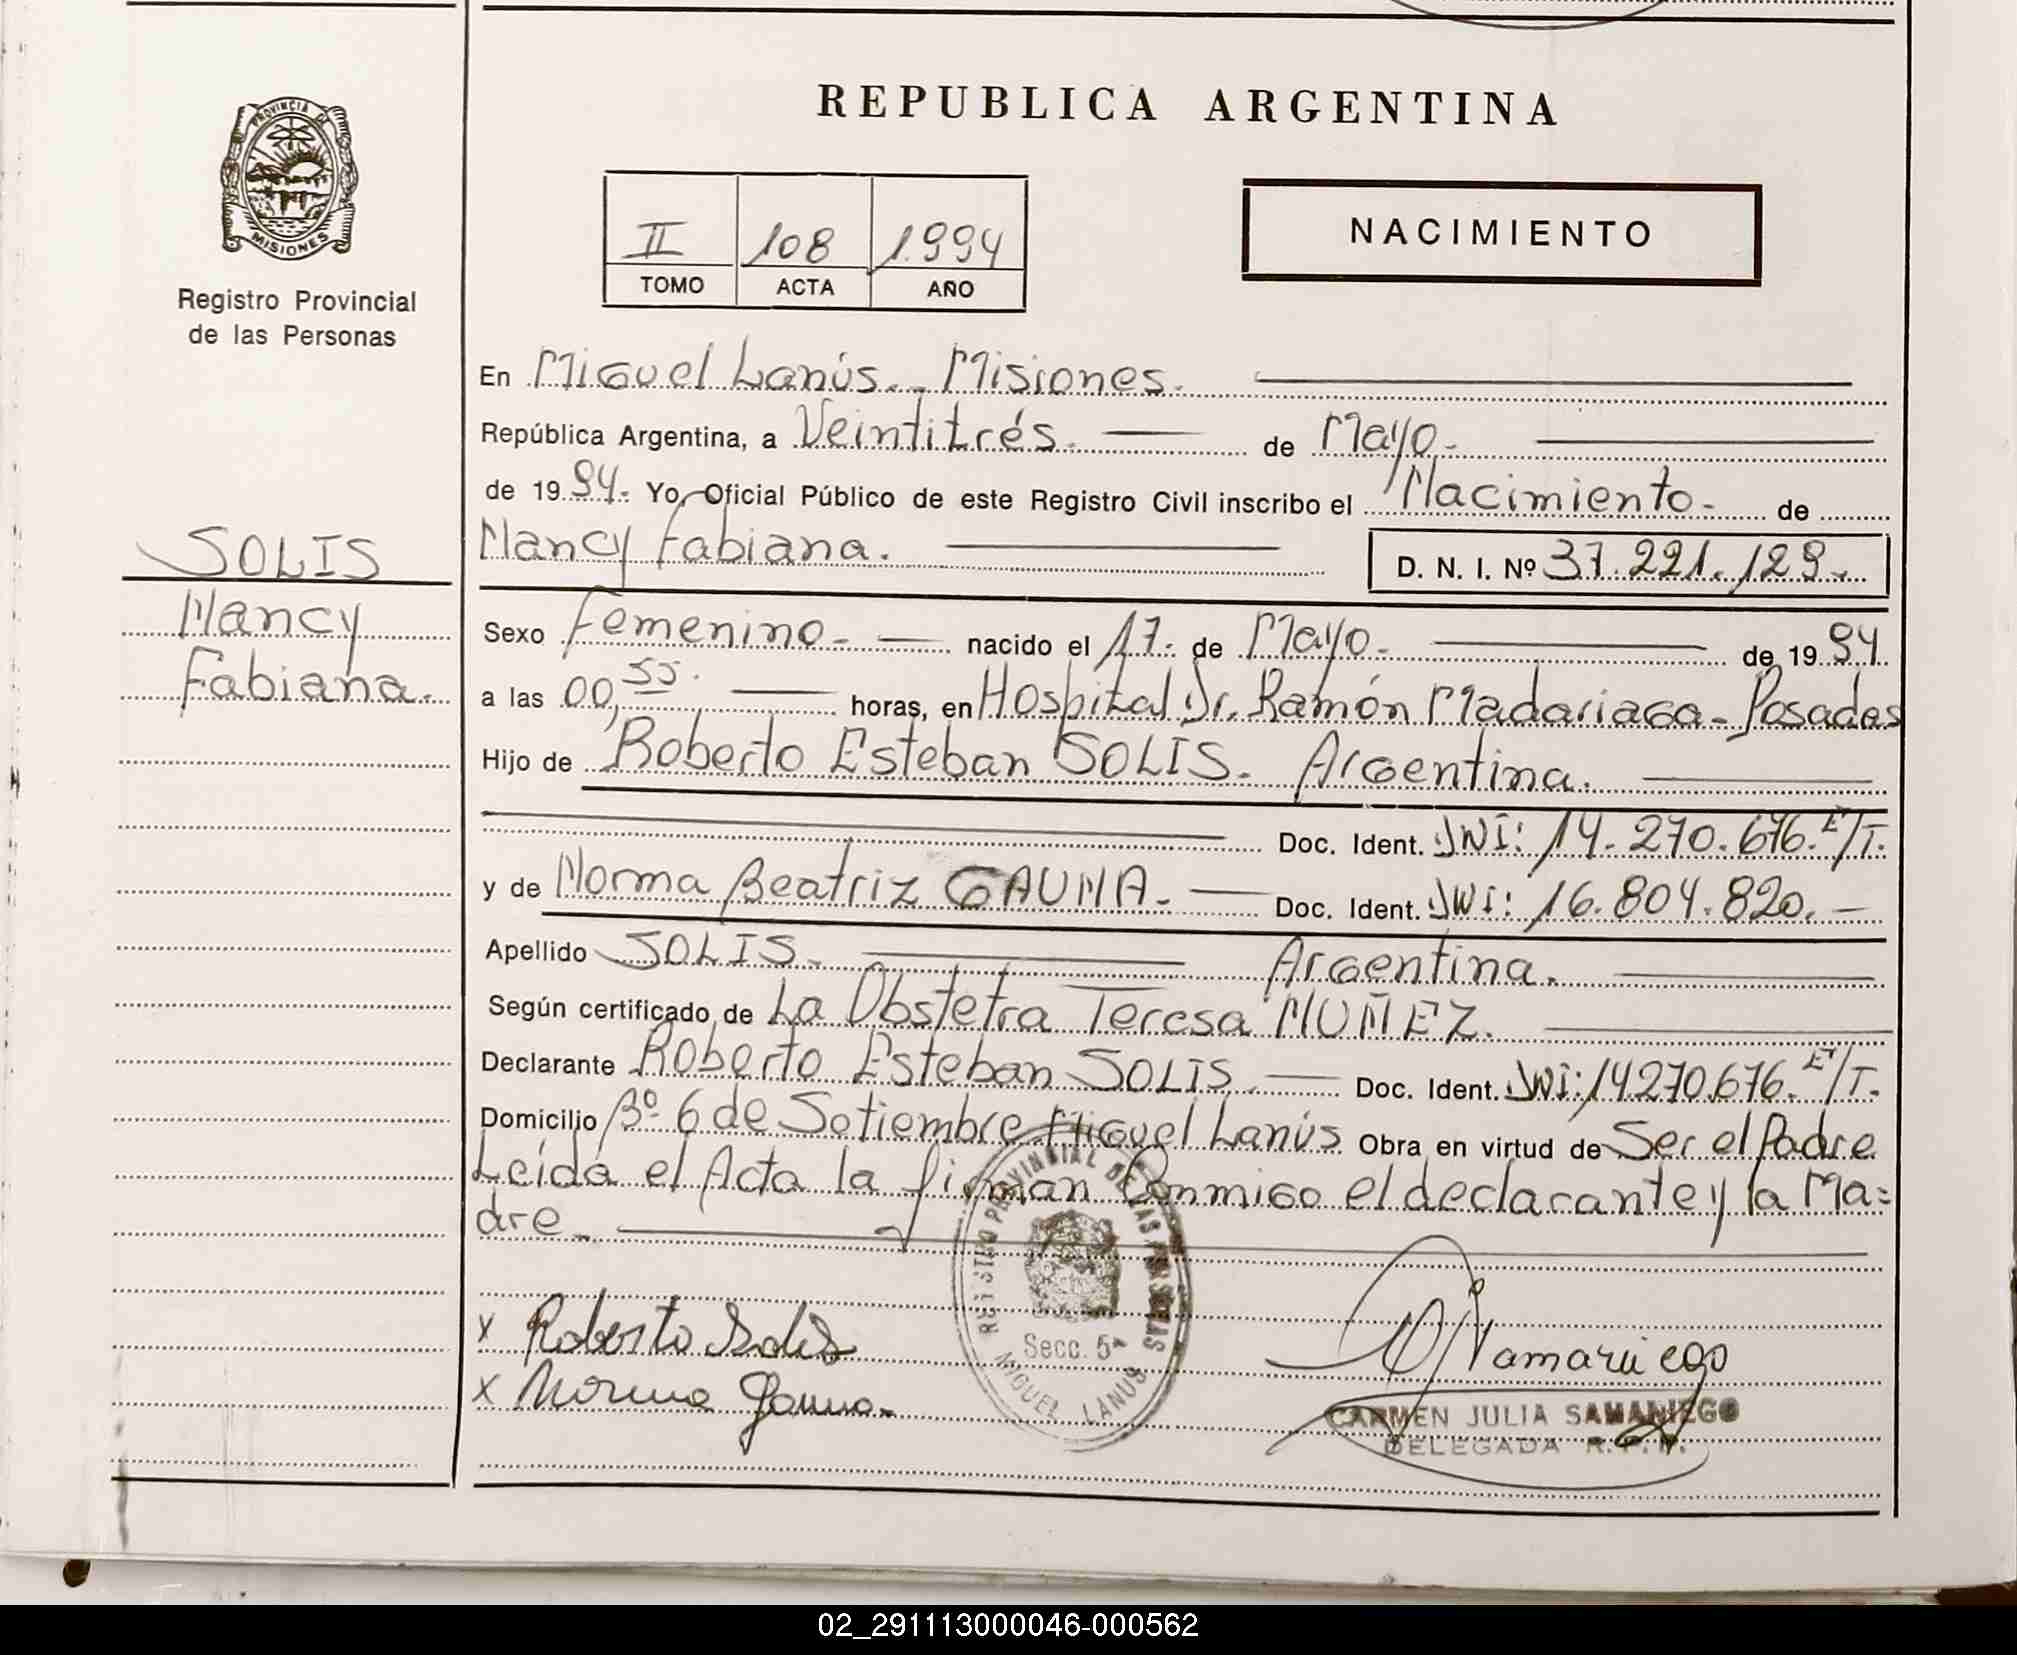 REPUBLICA ARGENTINA
PROVINCIA DE
MISIONES
Registro Provincial
de las Personas
II 108 1.994
TOMO ACTA AÑO
NACIMIENTO
En Miguel Lanús.. Misiones.
República Argentina, a Veintitrés. de Mayo.
de 19 94. Yo, Oficial Público de este Registro Civil inscribo el Nacimiento. de
Nancy Fabiana. D. N. I. Nº 37.221.129.
SOLIS
Nancy
Fabiana.
Sexo Femenino. nacido el 17. de Mayo. de 19 94.
a las 00,55. horas, en Hospital Dr. Ramón Madariaga - Posadas
Hijo de Roberto Esteban SOLIS. Argentina.
Doc. Ident. DNI: 14.270.676. E/T.
y de Norma Beatriz GAUNA. Doc. Ident. DNI: 16.804.820.
Apellido SOLIS. Argentina.
Según certificado de La Obstetra Teresa NUÑEZ.
Declarante Roberto Esteban SOLIS. Doc. Ident. DNI: 14270.676. E/T.
Domicilio Bº 6 de Setiembre Miguel Lanús Obra en virtud de Ser el Padre
Leída el Acta la firman Conmigo el declarante y la Ma=
dre.
REGISTRO PROVINCIAL DE LAS PERSONAS
Secc. 5ª
MIGUEL LANUS
x Roberto Solis
x Norma Gauna.
Samaniego
CARMEN JULIA SAMANIEGO
DELEGADA R. P. P.
02_291113000046-000562